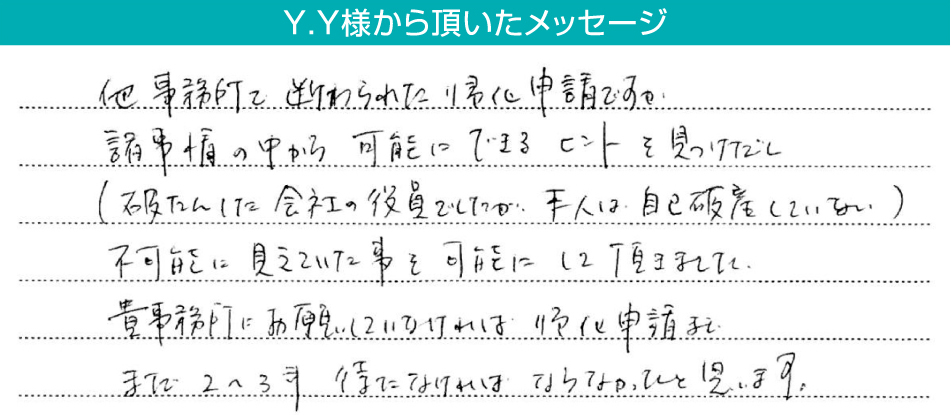 Y.Y様から頂いたメッセージ
他事務所で断わられた帰化申請ですが.
諸事情の中から可能にできるヒントを見つけだし
(破たんした会社の役員でしたが.本人は自己破産していない)
不可能に見えていた事を可能にして頂きました.
貴事務所にお願いしていなければ帰化申請まで
まだ2〜3年待たなければならなかったと思います。